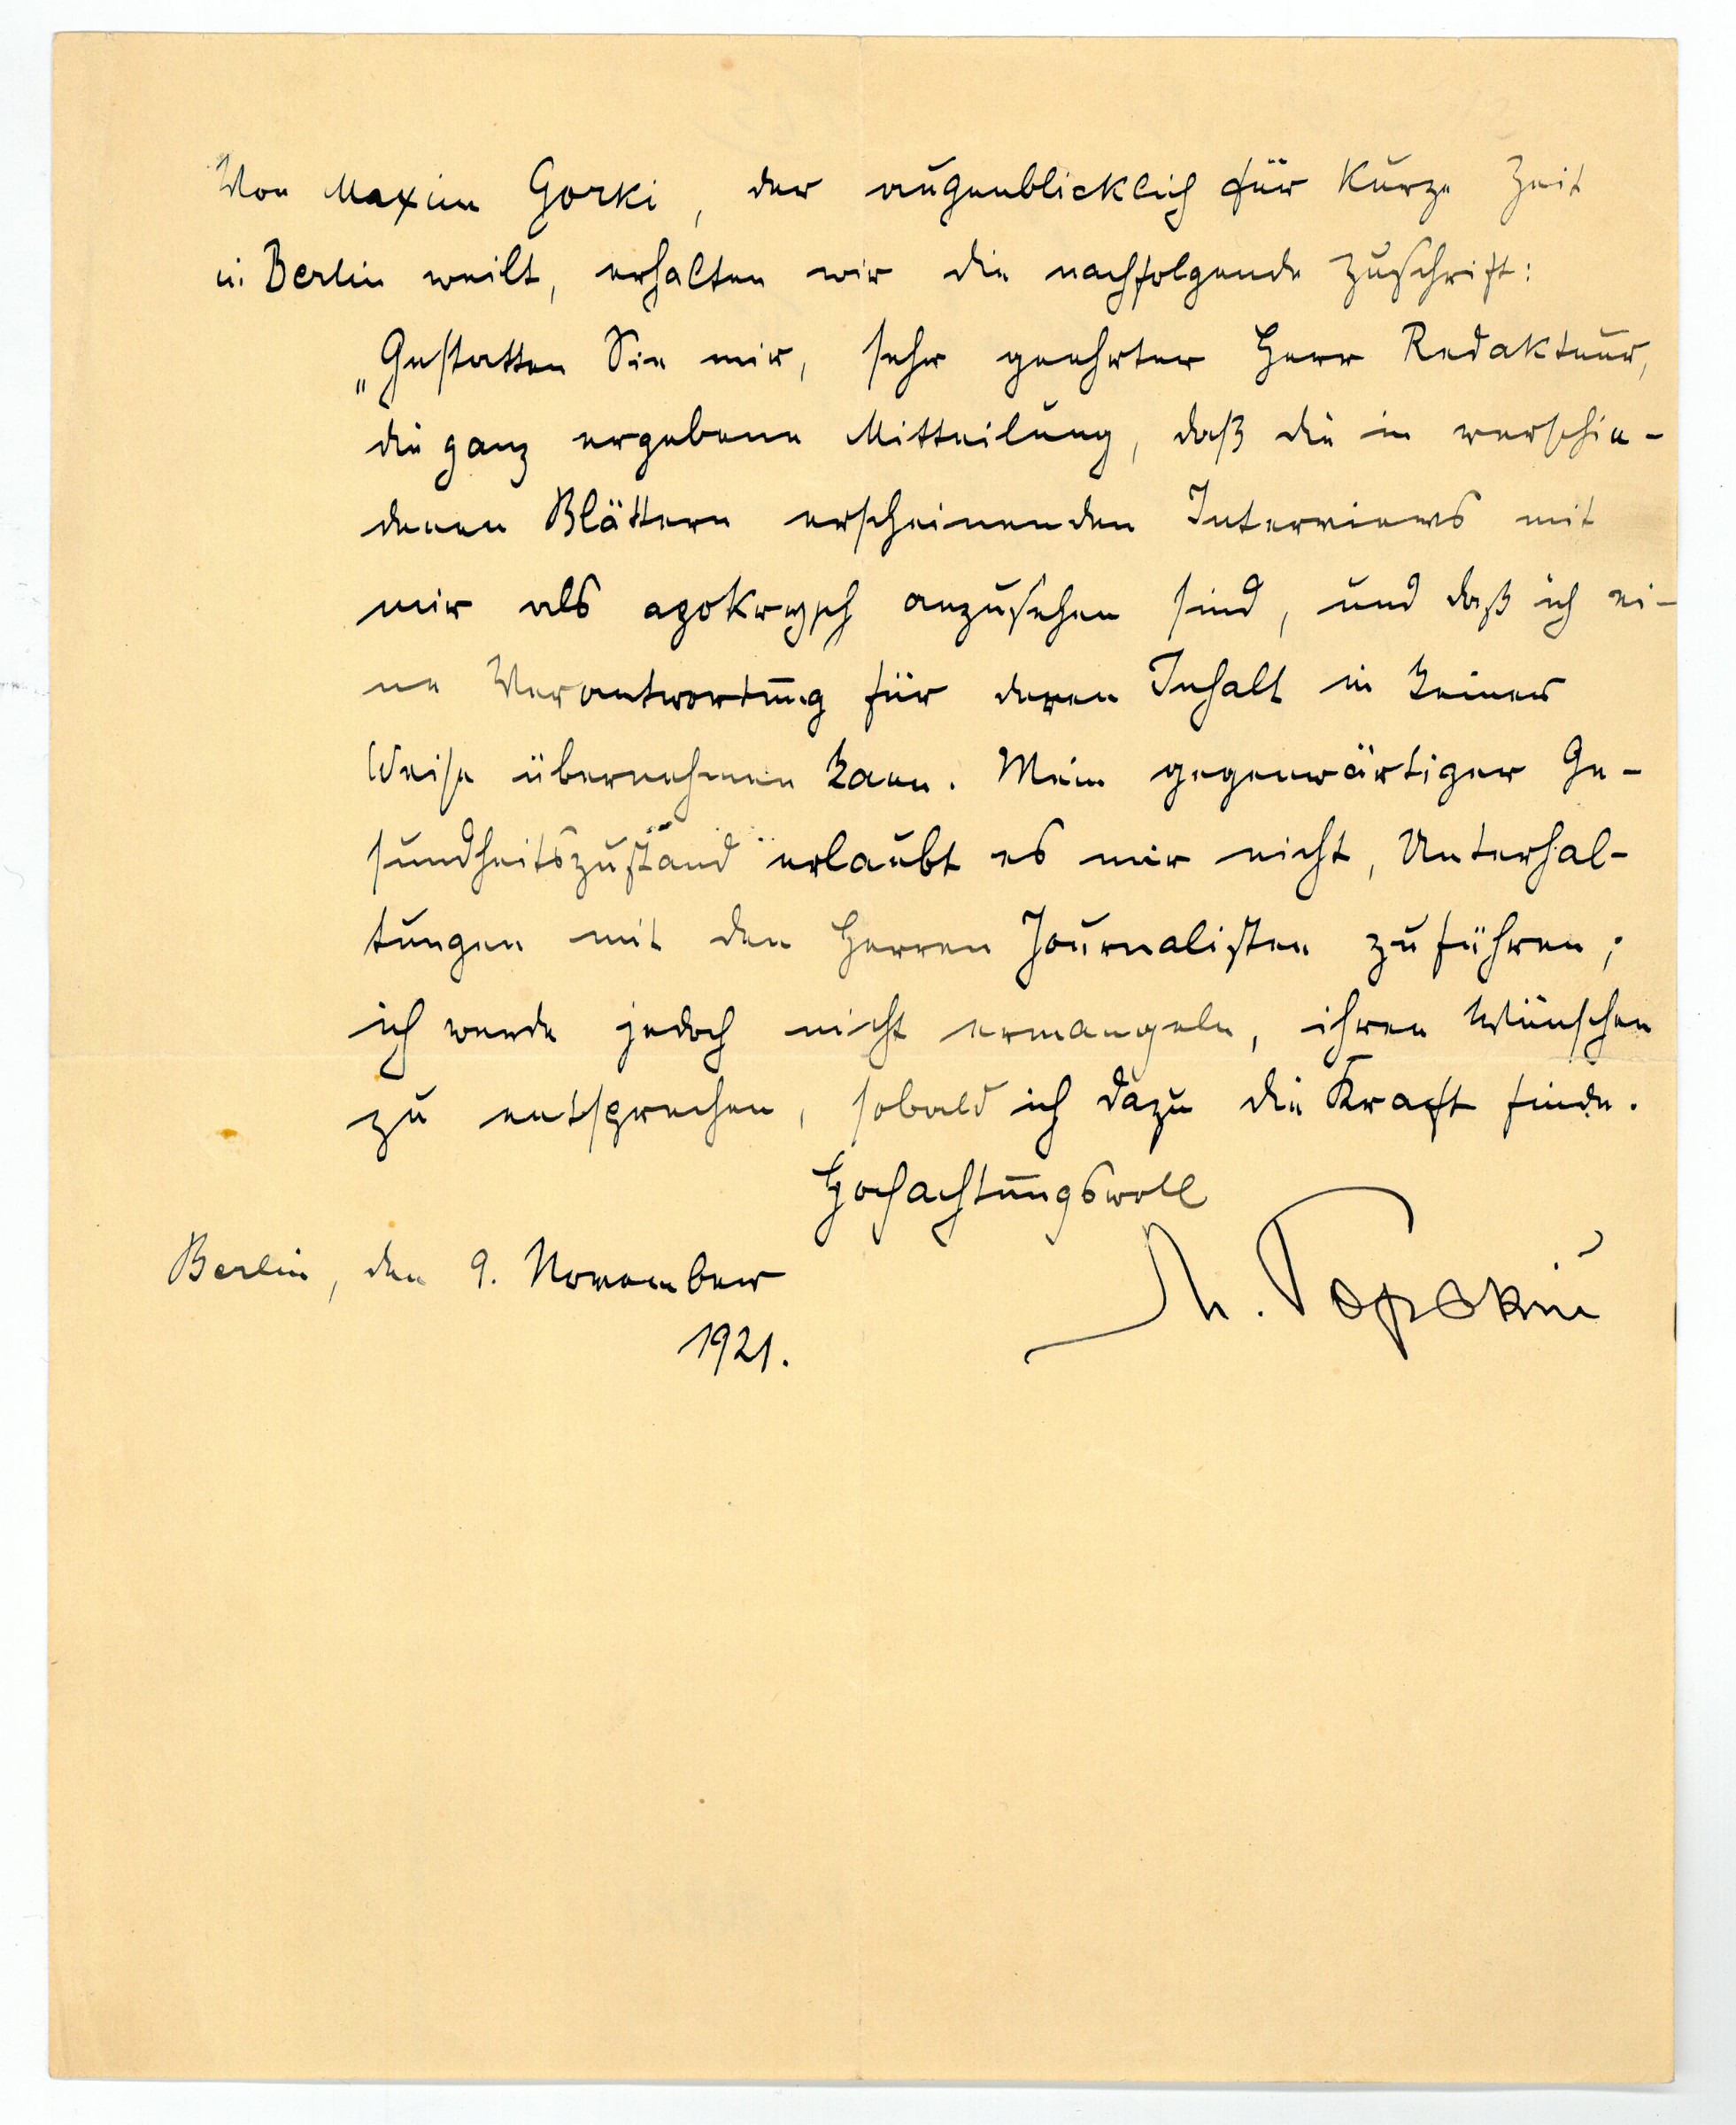 Von Maxim Gorki, der augenblicklich für kurze Zeit
in Berlin weilt, erhalten wir die nachfolgende Zuschrift:
„Gestatten Sie mir, sehr geehrter Herr Redakteur,
die ganz ergebene Mitteilung, daß die in verschie-
denen Blättern erscheinenden Interviews mit
mir als apokryph anzusehen sind, und daß ich ei-
ne Verantwortung für deren Inhalt in keiner
Weise übernehmen kann. Mein gegenwärtiger Ge-
sundheitszustand erlaubt es mir nicht, Unterhal-
tungen mit den Herren Journalisten zu führen;
ich werde jedoch nicht ermangeln, ihren Wünschen
zu entsprechen, sobald ich dazu die Kraft finde.
Hochachtungsvoll
Berlin, den 9. November
1921.
М. Горький